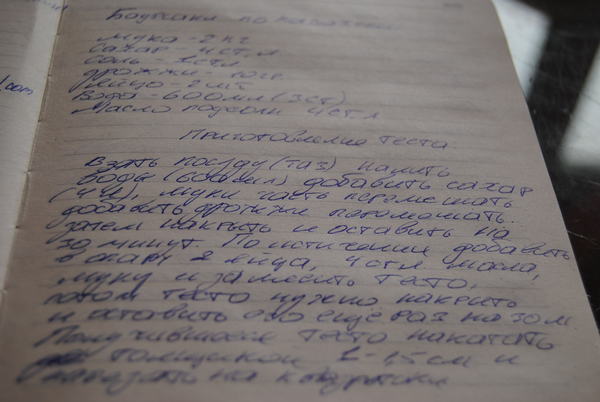 Баурсаки по казахски
мука - 2 кг
сахар - 4 ст.л
соль - 1 ст.л
дрожжи -
яйцо - 2 шт
вода - 600 мл (3 ст)
Масло подсолн 4 ст.л
Приготовление теста.
взять посуду (таз) налить
воды (600 мл) добавить сахар
муки часть перемешать
добавить дрожжи перемешать.
затем накрыть и оставить на
30 минут. По истечении добавить
в опару 2 яйца, 4 ст.л масла,
муку и замесить тесто,
потом тесто нужно накрыть
и оставить его еще раз на 30 м
Получившееся тесто накатать
толщиной 1-1,5 см и
на квадратики
com